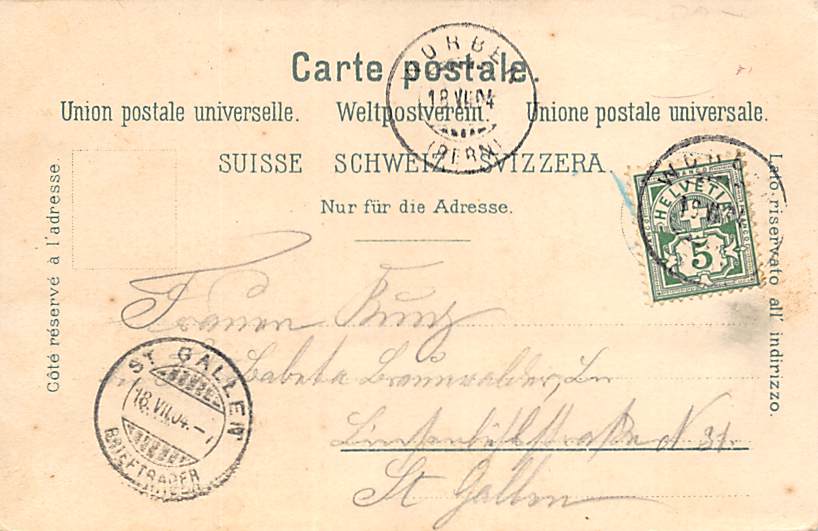 WORBEN
18.VII.04
(BERN)
Carte postale.
Union postale universelle. Weltpostverein. Unione postale universale.
SUISSE SCHWEIZ SVIZZERA
Nur für die Adresse.
Côté réservé à l'adresse.
Lato riservato all' indirizzo.
HELVETIA
5
Frauen Kunz
Babeta Braunwalder,
Linsenbühlstraße N 31.
St Gallen
ST. GALLEN
18.VII.04.
BRIEFTRÄGER